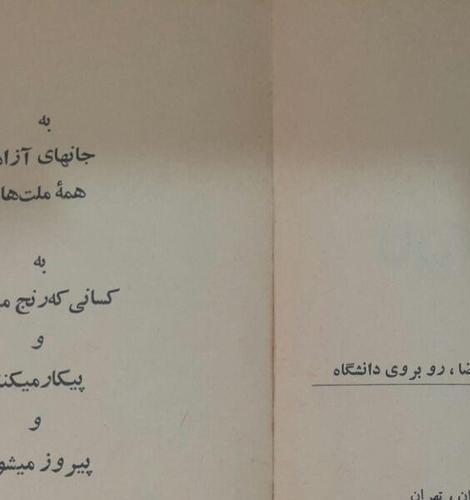 به
جانهای آزا
همهٔ ملت‌ها
به
کسانی که رنج م
و
پیکار میکن
و
پیروز میشو
ضا، روبروی دانشگاه
ان، تهران